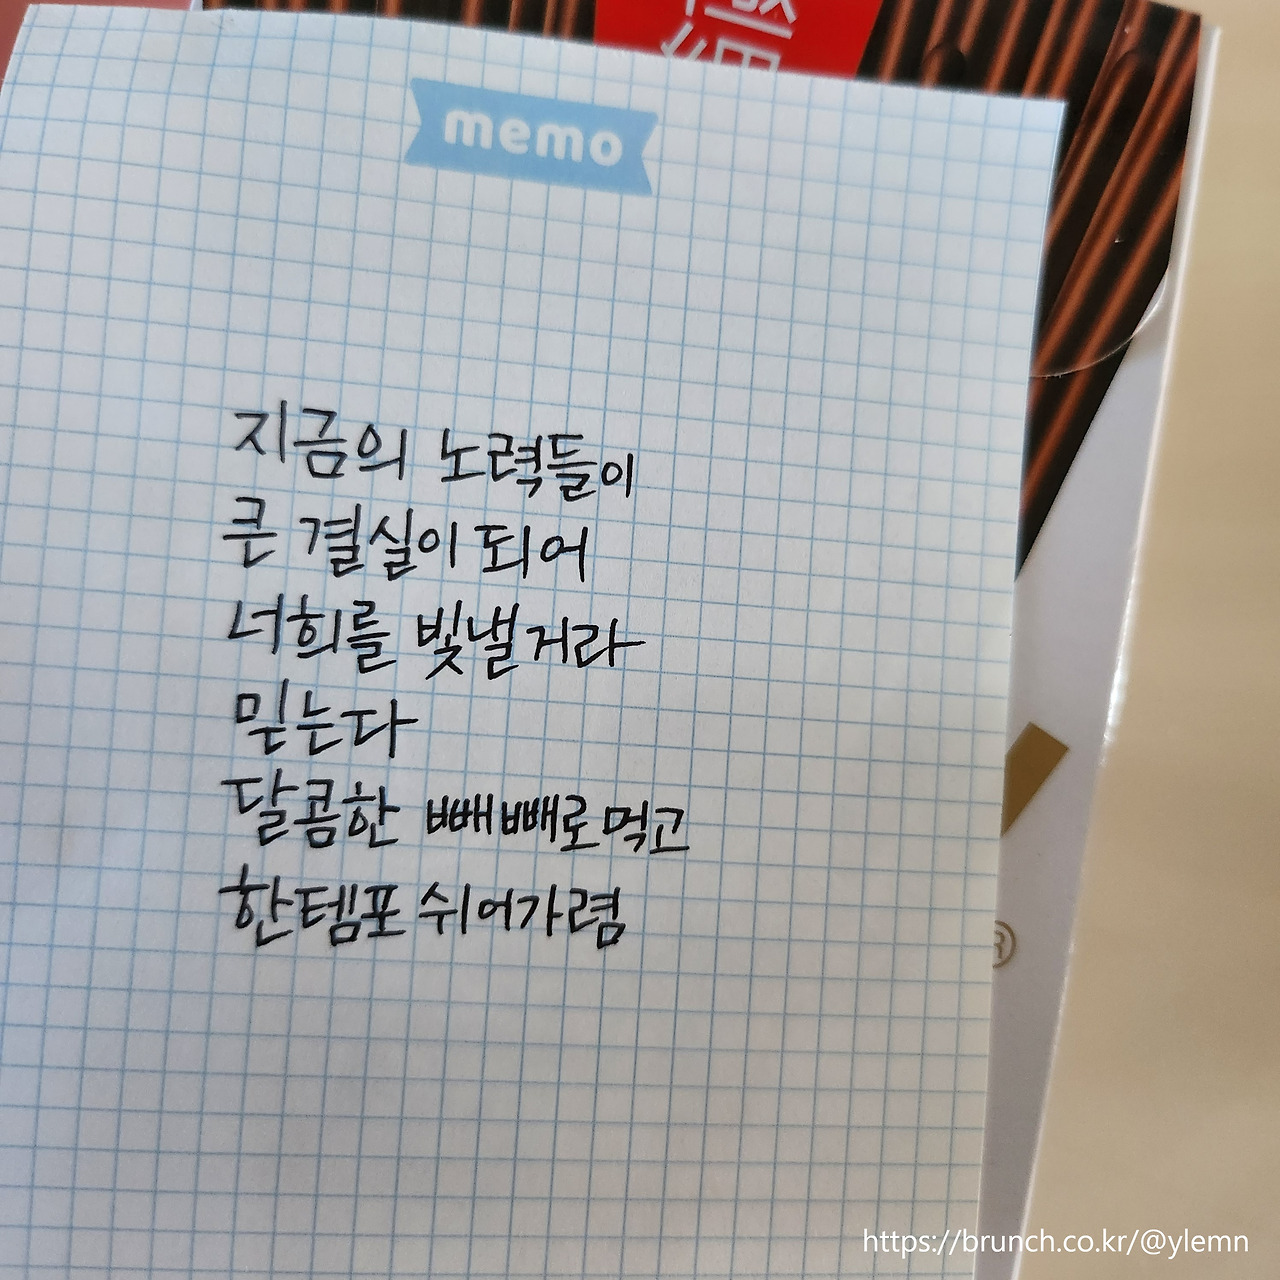 極
細
memo
지금의 노력들이
큰 결실이 되어
너희를 빛낼거라
믿는다
달콤한 빼빼로먹고
한템포 쉬어가렴
®
https://brunch.co.kr/@ylemn